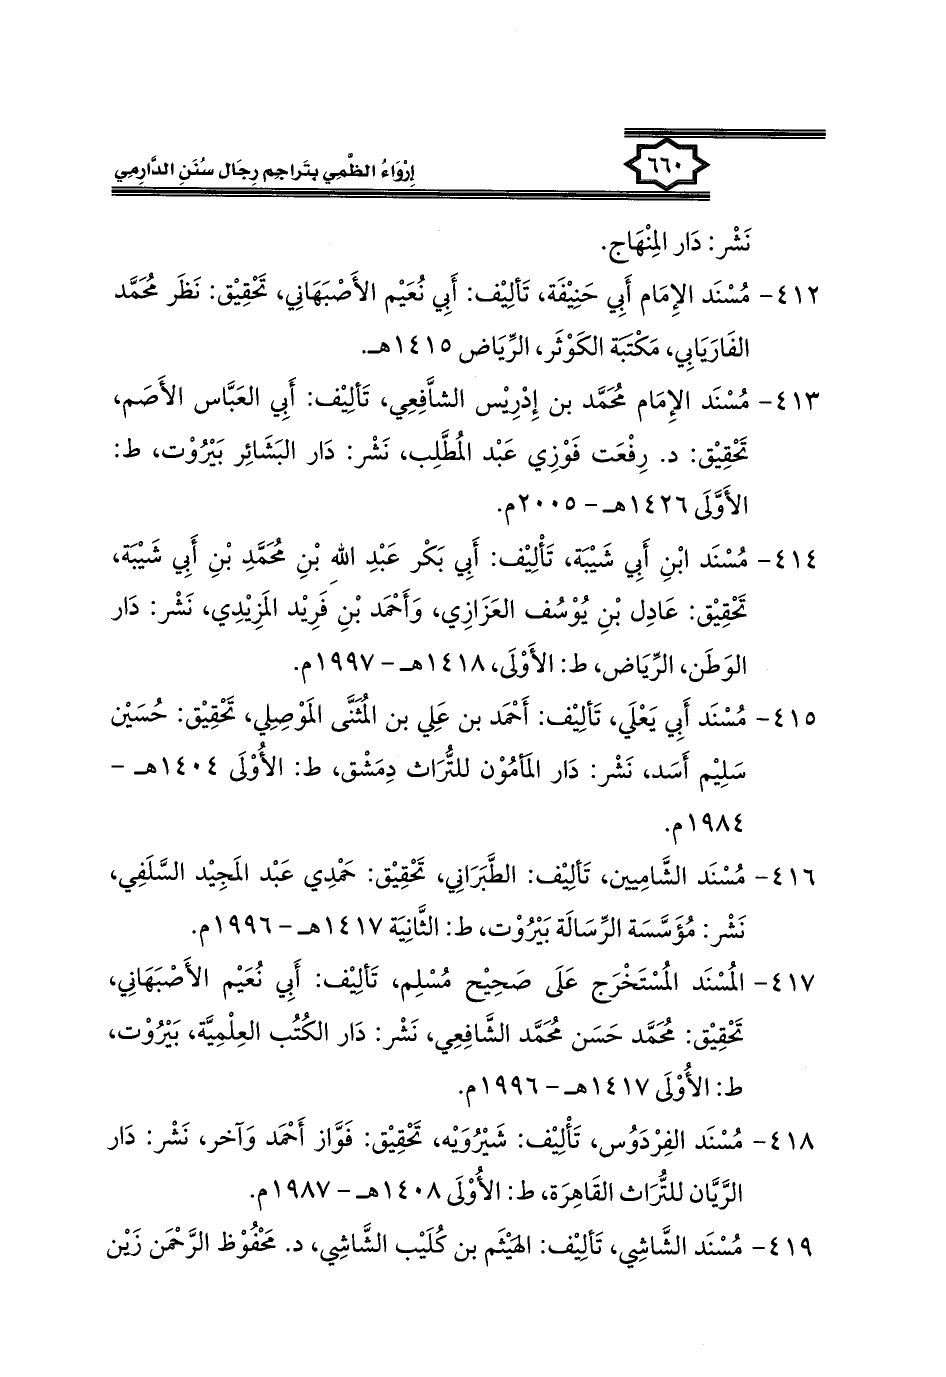 ٦٦٠
إِرْوَاءُ الظَّمِي بتَراجِم رِجَال سُنَنِ الدَّارِمِي
نَشْر: دَار المِنْهَاج.
٤١٢- مُسْنَد الإِمَام أَبِي حَنِيْفَة، تَأليْف: أَبِي نُعَيْم الأَصْبَهَانِي، تَحْقِيْق: نَظَر مُحَمَّد
الفَارَيَابِي، مَكْتَبَة الكَوْثَر، الرِّيَاض ١٤١٥هـ.
٤١٣- مُسْنَد الإِمَام مُحَمَّد بن إِدْرِيْس الشَّافِعِي، تَأليْف: أَبِي العَبَّاس الأَصَم،
تَحْقِيْق: د. رِفْعَت فَوْزِي عَبْد المُطَّلِب، نَشْر: دَار البَشَائِر بَيْرُوْت، ط:
الأَوَّلَى ١٤٢٦هـ - ٢٠٠٥م.
٤١٤- مُسْنَد ابْنِ أَبِي شَيْبَة، تَأْلِيْف: أَبِي بَكْر عَبْدِ اللهِ بْنِ مُحَمَّدِ بْنِ أَبِي شَيْبَة،
تَحْقِيْق: عَادِل بْنِ يُوْسُف العَزَازِي، وَأَحْمَد بْنِ فَرِيْد المَزِيْدِي، نَشْر: دَار
الوَطَن، الرِّيَاض، ط: الأَوْلَى، ١٤١٨هـ - ١٩٩٧م.
٤١٥- مُسْنَد أَبِي يَعْلَي، تَأليْف: أَحْمَد بن عَلِي بن المُثَنَّى المَوْصِلِي، تَحْقِيْق: حُسَيْن
سَلِيْم أَسَد، نَشْر: دَار المَأمُوْن للتُّرَاث دِمَشْق، ط: الأُوْلَى ١٤٠٤هـ -
١٩٨٤م.
٤١٦- مُسْنَد الشَّامِيين، تَأليْف: الطَّبَرَانِي، تَحْقِيْق: حَمْدِي عَبْد المَجِيْد السَّلَفِي،
نَشْر: مُؤَسَّسَة الرِّسَالَة بَيْرُوْت، ط: الثَّانِيَة ١٤١٧هـ - ١٩٩٦م.
٤١٧- المُسْنَد المُسْتَخْرَج عَلَى صَحِيْح مُسْلِم، تَأليْف: أَبِي نُعَيْم الأَصْبَهَانِي،
تَحْقِيْق: مُحَمَّد حَسَن مُحَمَّد الشَّافِعِي، نَشْر: دَار الكُتُب العِلْمِيَّة، بَيْرُوْت،
ط: الأُوْلَى ١٤١٧هـ - ١٩٩٦م.
٤١٨- مُسْنَد الفِرْدَوُس، تَأْلِيْف: شَيْرُوَيْه، تَحْقِيْق: فَوَّاز أَحْمَد وَآخر، نَشْر: دَار
الرَّيَّان للتُّرَاث القَاهِرَة، ط: الأُوْلَى ١٤٠٨هـ - ١٩٨٧م.
٤١٩- مُسْنَد الشَّاشِي، تَأليْف: الهَيْثَم بن كُلَيْب الشَّاشِي، د. مَحْفُوْظ الرَّحْمَن زَيْن